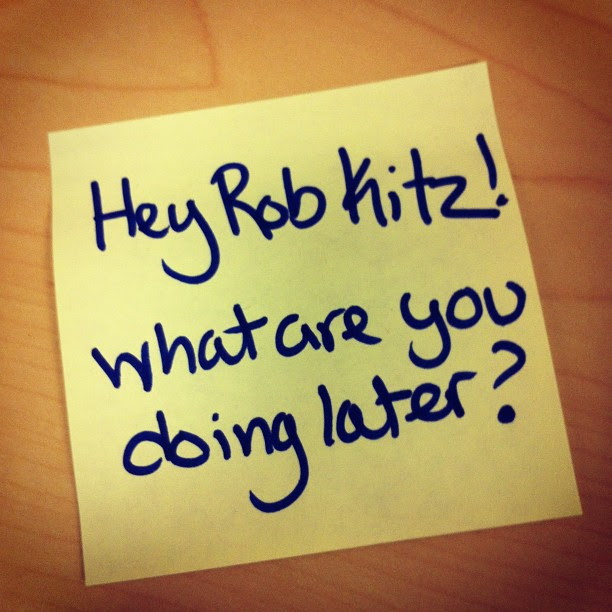 Hey Rob Kitz!
what are you
doing later?